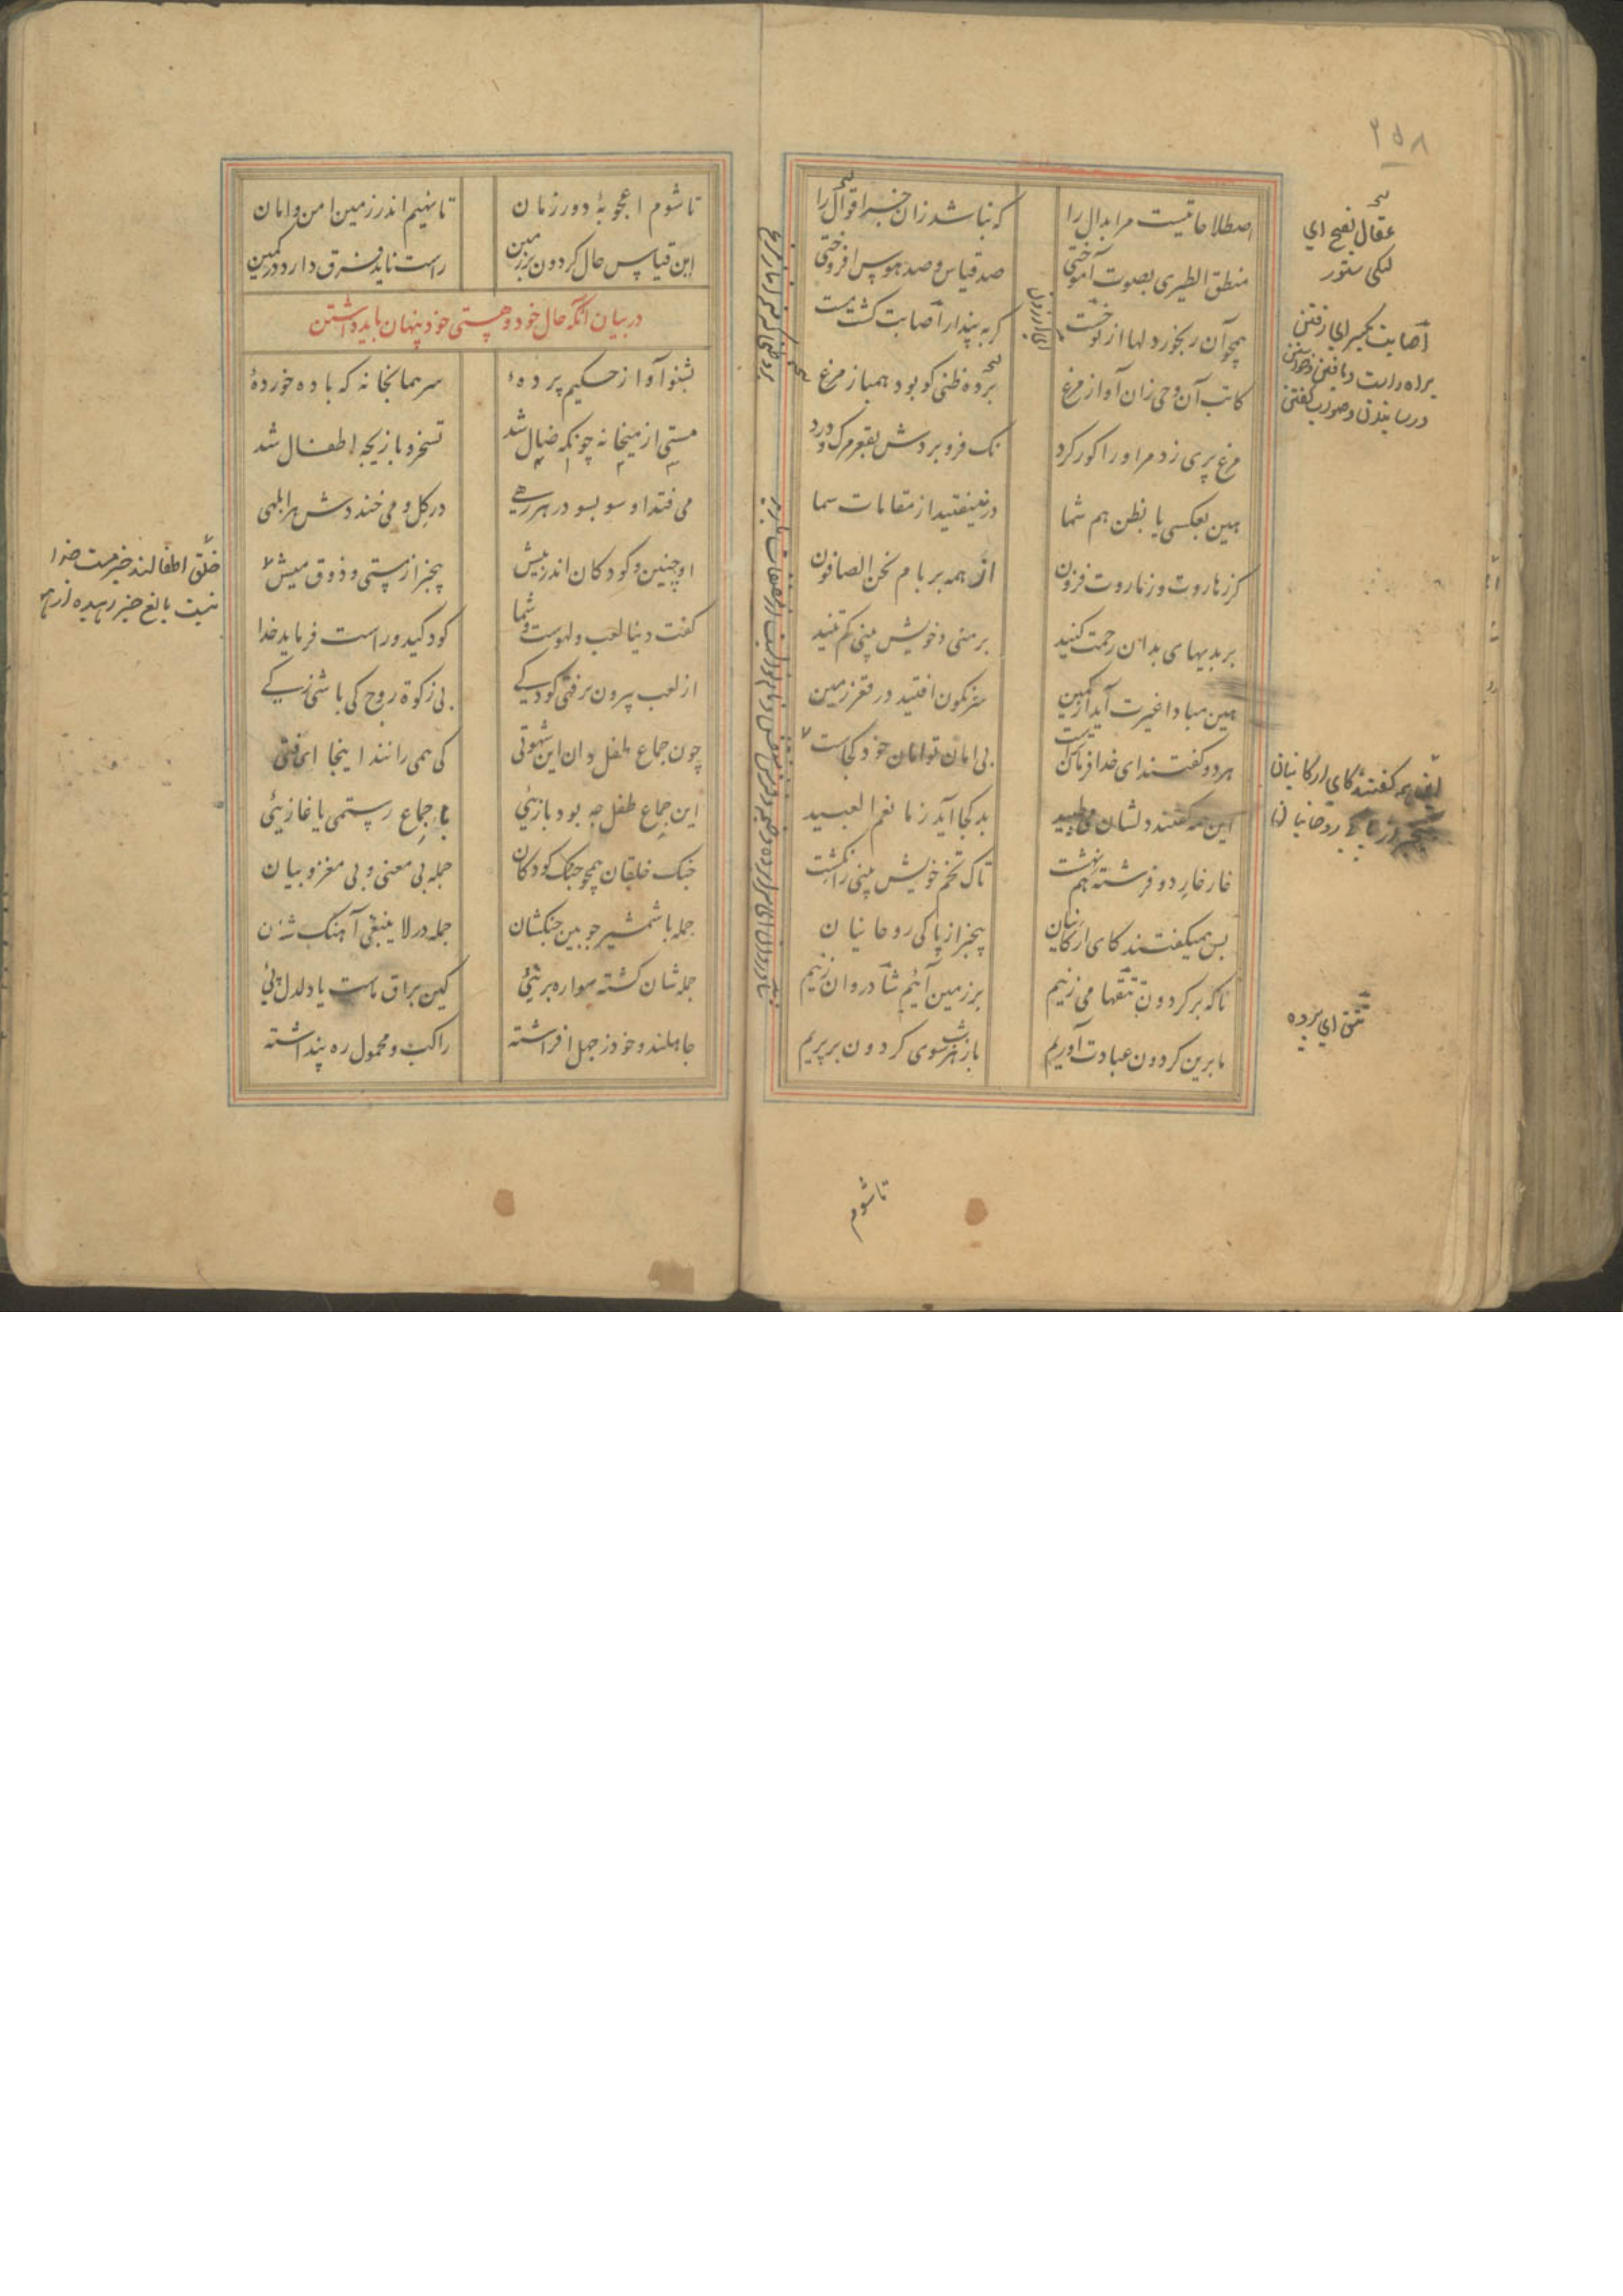 ۲۵۸
اصطلاحاتیست مرابدال را
که نباشد زان خبر اقوال را
منطق الطیری بصوت آموختی
صد قیاس و صد هوس افروختی
همچو آن رنجور دلها از تو خست
کر به پندار اصابت گشت مست
کاتب آن وحی زان آواز مرغ
برده ظنی کو بود همباز مرغ
مرغ پری زد مر او را کور کرد
نک فرو بردش بقعر مرگ و درد
هین بعکسی یا بظن هم شما
در نیفتید از مقامات سما
گرز هاروت و ز ماروت فزون
از همه بر بام نحن الصافون
بر بدیهای بدان رحمت کنید
بر منی و خویش بینی کم تنید
هین مبادا غیرت آید از کمین
سرنگون افتید در قعر زمین
هر دو گفتند ای خدا فرمان تراست
بی امان تو امان خود کجاست
این همه گفتند و دلشان می طپید
بد کجا آید ز ما نعم العبید
خار خار دو فرشته هم نهشت
تا که تخم خویش بینی را نکشت
پس همیگفتند کای ارکانیان
بیخبر از پاکی روحانیان
ما که بر گردون تتقها می زنیم
بر زمین آئیم شادروان زنیم
ما برین گردون عبادت آوریم
باز هر شب سوی گردون بر پریم
عقال بفتح ای
لنگی ستور
تتق ای پرده
تا شوم
تا شوم اعجوبهٔ دور زمان
تا نهیم اندر زمین امن و امان
این قیاس حال گردون بر زمین
راست ناید فرق دارد در کمین
در بیان آنکه حال خود و مستی خود پنهان باید داشتن
بشنو آواز حکیم پردهٔ
سر همانجا نه که باده خوردهٔ
مستی از میخانه چونکه ضال شد
تسخر و بازیچه اطفال شد
می فتد او سو بسو در هر رهی
در گل و می خنددش هر ابلهی
او چنین و کودکان اندر پیش
بیخبر از مستی و ذوق میش
گفت دنیا لعب و لهوست و شما
کودکید و راست فرماید خدا
از لعب بیرون نرفتی کودکی
بی زکوة روح کی باشی زکی
چون جماع طفل دان این شهوتی
کی همی رانند اینجا ای فتی
این جماع طفل چه بود بازیئی
با جماع رستمی یا غازیئی
جنگ خلقان همچو جنگ کودکان
جمله بی معنی و بی مغز و بیان
جمله با شمشیر چوبین جنگشان
جمله در لا ینبغی آهنگشان
جمله شان گشته سواره بر نیی
کین براق ماست یا دلدل پیی
جاهلند و خود ز جهل افراشته
راکب و محمول ره پنداشته
خلق اطفالند جز مست خدا
نیست بالغ جز رهیده از هوا